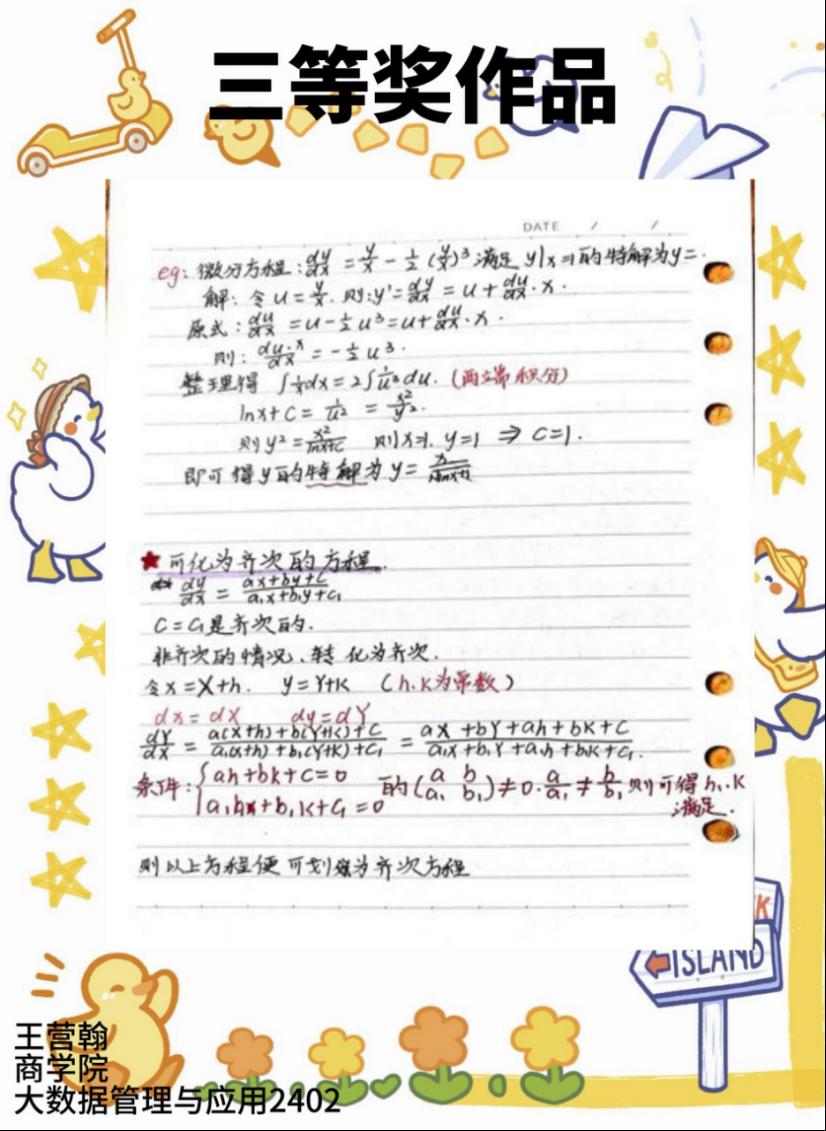 三等奖作品
DATE / /
eg: 微分方程: dy/dx = y/x - 1/2 (y/x)³ 满足 y|x=1的特解为y=.
解: 令 u = y/x. 则: y' = dy/dx = u + du/dx · x .
原式: du/dx = u - 1/2 u³ = u + du/dx · x .
则: du·x/dx = - 1/2 u³ .
整理得 ∫1/x dx = 2∫1/u³ du. (两端积分)
lnx + C = 1/u² = x²/y² .
则 y² = x²/lnx+C 则x=1. y=1 ⇒ C=1.
即可得y的特解为 y = x/√lnx+1
★ 可化为齐次的方程.
dy/dx = ax+by+C/a₁x+b₁y+C₁
C = C₁是齐次的.
非齐次的情况、转化为齐次.
令x=X+h. y=Y+K (h.K为常数)
dx = dX dy = dY
dY/dX = a(X+h)+b(Y+K)+C/a₁(X+h)+b₁(Y+K)+C₁ = aX+bY+ah+bK+C/a₁X+b₁Y+a₁h+b₁K+C₁.
条件: { ah+bk+C=0 的(a b a₁ b₁)≠0. a/a₁ ≠ b/b₁ 则可得 h,.K
a₁h+b₁K+C₁=0 满足.
则以上方程便可划为齐次方程
ISLAND
王营翰
商学院
大数据管理与应用2402